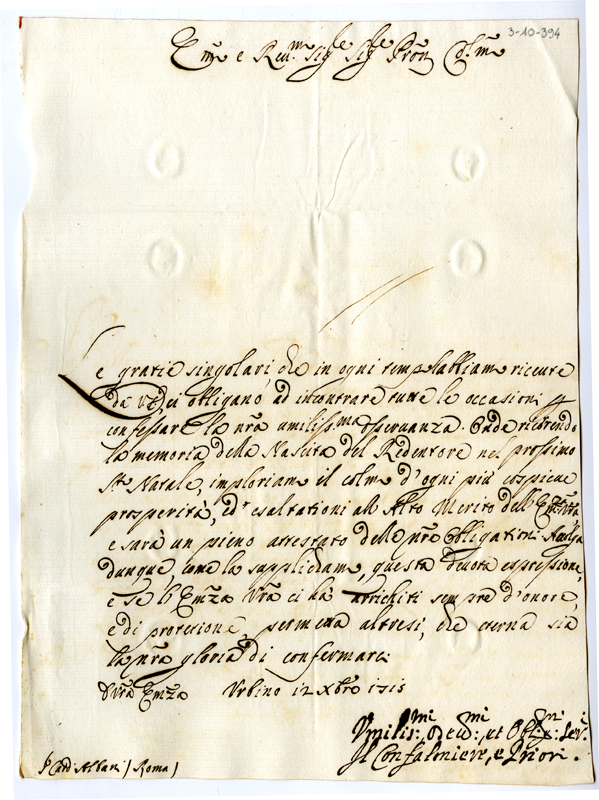 3-10-394
Em.o e Reu.mo Sig.re Sig.re Pron Col.mo
Le gratie singolari, che in ogni tempo habbiamo riceute
da VE, ci obligano ad incontrare tutte le occasioni p
confessare la nrã umilissma osseruanza. Onde ricorrendo
la memoria della Nascita del Redentore nel prossimo
Sto Natale, imploriamo il colmo d'ogni più cospicue
prosperità, ed esaltationi all Alto Merito dell'Emza Vrã
e sarà un pieno attestato delle nrẽ Obligationi. Accolga
dunque come la supplichiamo, questa deuota espressione,
e se l'Emza Vrã ci ha arrichiti sempre d'onore,
e di protetione, permetta altresi, che eterna sia
la nrã gloria di confermarci
D Vrã Emza Urbino 12 Xbro 1715
Vmilis:mi, Deuo:mi et Obl:mi Seri
Il Confaloniere, e Priori.
P Card: Albani / Roma /